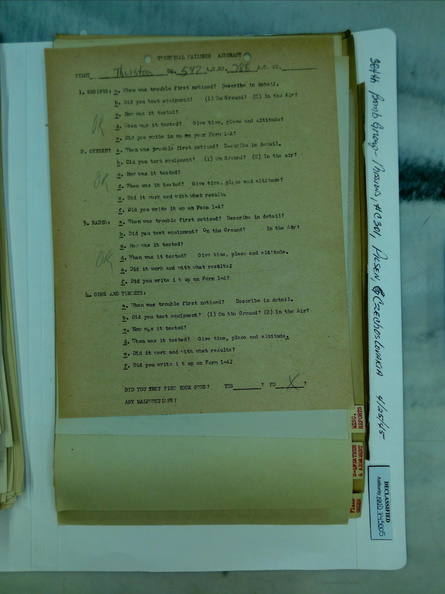 TECHNICAL FAILURE AIRCRAFT
PILOT Thurston SQ. 547 A/C NO. 788 A.C. LT.
1. ENGINE: a. When was trouble first noticed? Describe in detail.
b. Did you test equipment? (1) On Ground? (2) In the Air?
c. How was it tested?
OK
d. When was it tested? Give time, place and altitude?
e. Did you write in on your Form 1-A?
2. OXYGEN: a. When was trouble first noticed? Describe in detail.
b. Did you test equipment? (1) On Ground? (2) In the air?
OK
c. How was it tested?
d. When was it tested? Give time, place and altitude?
e. Did it work and with what results.
f. Did you write it up on Form 1-A?
3. RADIO: a. When was trouble first noticed? Describe in detail?
b. Did you test equipment? On the Ground? In the Air?
c. How was it tested?
OK
d. When was it tested? Give time, place and altitude.
e. Did it work and with what results?
f. Did you write it up on Form 1-A?
4. GUNS AND TURRETS:
a. When was trouble first noticed? Describe in detail.
b. Did you test equipment? (1) On the Ground? (2) In the Air?
c. How was it tested?
d. When was it tested? Give time, place and altitude.
e. Did it work and with what results?
f. Did you write it up on Form 1-A?
DID YOU FIRE YOUR GUNS? YES ? NO X ?
ANY MALFUNCTIONS?
384th Bomb Group - Mission #C301, Pilsen, Czechoslovakia 4/25/45
DECLASSIFIED
Authority NND 745005